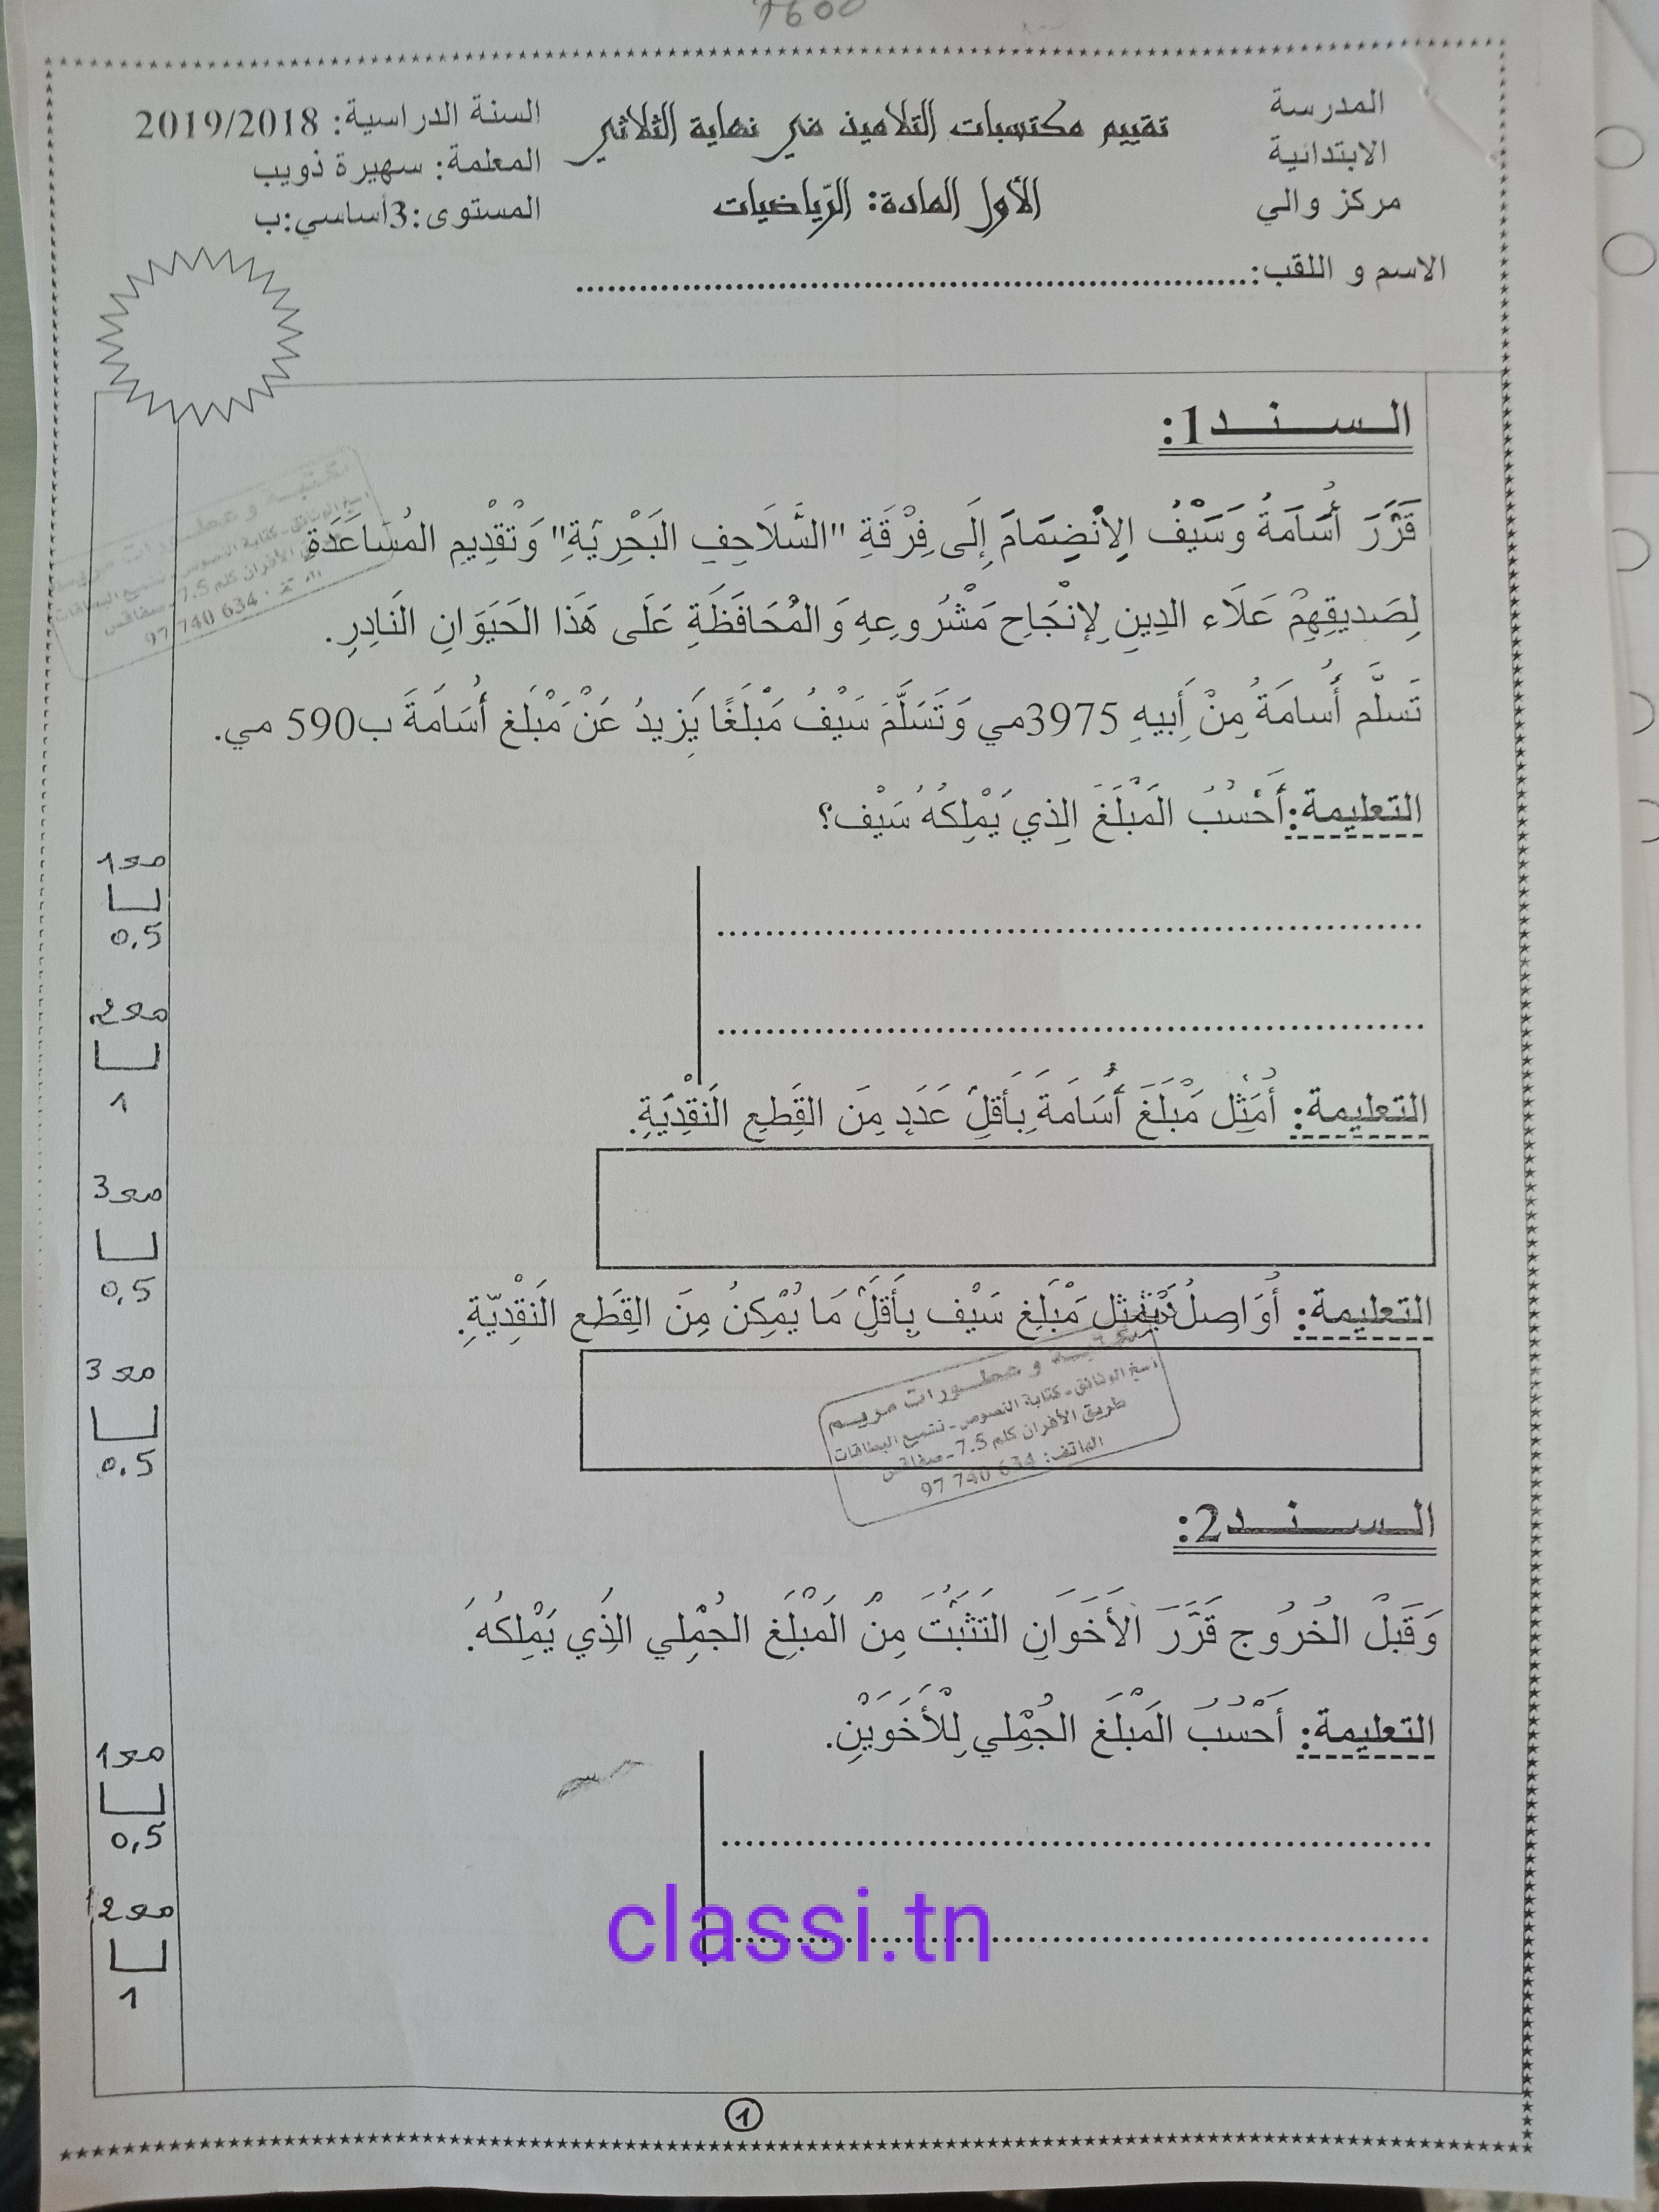 1600
المدرسة
الابتدائية
مركز والي
تقييم مكتسبات التلاميذ في نهاية الثلاثي
الأول المادة: الرّياضيات
السنة الدراسية: 2019/2018
المعلمة: سهيرة ذويب
المستوى:3أساسي:ب
الاسم و اللقب:
السند1:
قَرَّرَ أُسَامَةُ وَسَيْفُ الِإنْضِمَامَ إِلَى فِرْقَةِ "السَّلَاحِفِ البَحْرِيَّةِ" وَتَقْدِيمِ المُسَاعَدَةِ
لِصَديقِهِمْ عَلَاء الدِينِ لِإنْجَاحِ مَشْرُوعِهِ وَالمُحَافَظَةِ عَلَى هَذَا الحَيَوَانِ النَادِرِ.
تَسلَّم أُسامَةُ مِنْ أَبيهِ 3975مي وَتَسَلَّمَ سَيْفُ مَبْلَغًا يَزيدُ عَنْ مَبْلَغ أُسَامَةَ ب590 مي.
التعليمة:أَحْسُبُ المَبْلَغَ الِذي يَمْلِكُهُ سَيْف؟
مع1
0,5
مع2
1
التعليمة: أُمَثِل مَبْلَغَ أُسَامَةَ بِأَقلِ عَدَدٍ مِنَ القِطعِ النَقْدِيَةِ.
مع3
0,5
التعليمة: أُوَاصِلُ تَمْثِيل مَبْلغِ سَيْف بِأَقلِّ مَا يُمْكِنُ مِنَ القِطَع النَقْدِيّةِ.
مع3
0,5
مكتبة و عطورات مريم
نسخ الوثائق - كتابة النصوص - نشميع البطاقات
طريق الأفران كلم 7.5 - صفاقس
الهاتف: 634 740 97
السند2:
وَقَبْلَ الخُرُوج قَرَّرَ الأَخَوَانِ التَثَبُّتَ مِنْ المَبْلَغِ الجُمْلِي الذِي يَمْلِكُهُ.
التعليمة: أَحْسُبُ المَبْلَغ الجُمْلِي لِلْأَخَوَيْنِ.
مع1
0,5
مع2
1
classi.tn
1